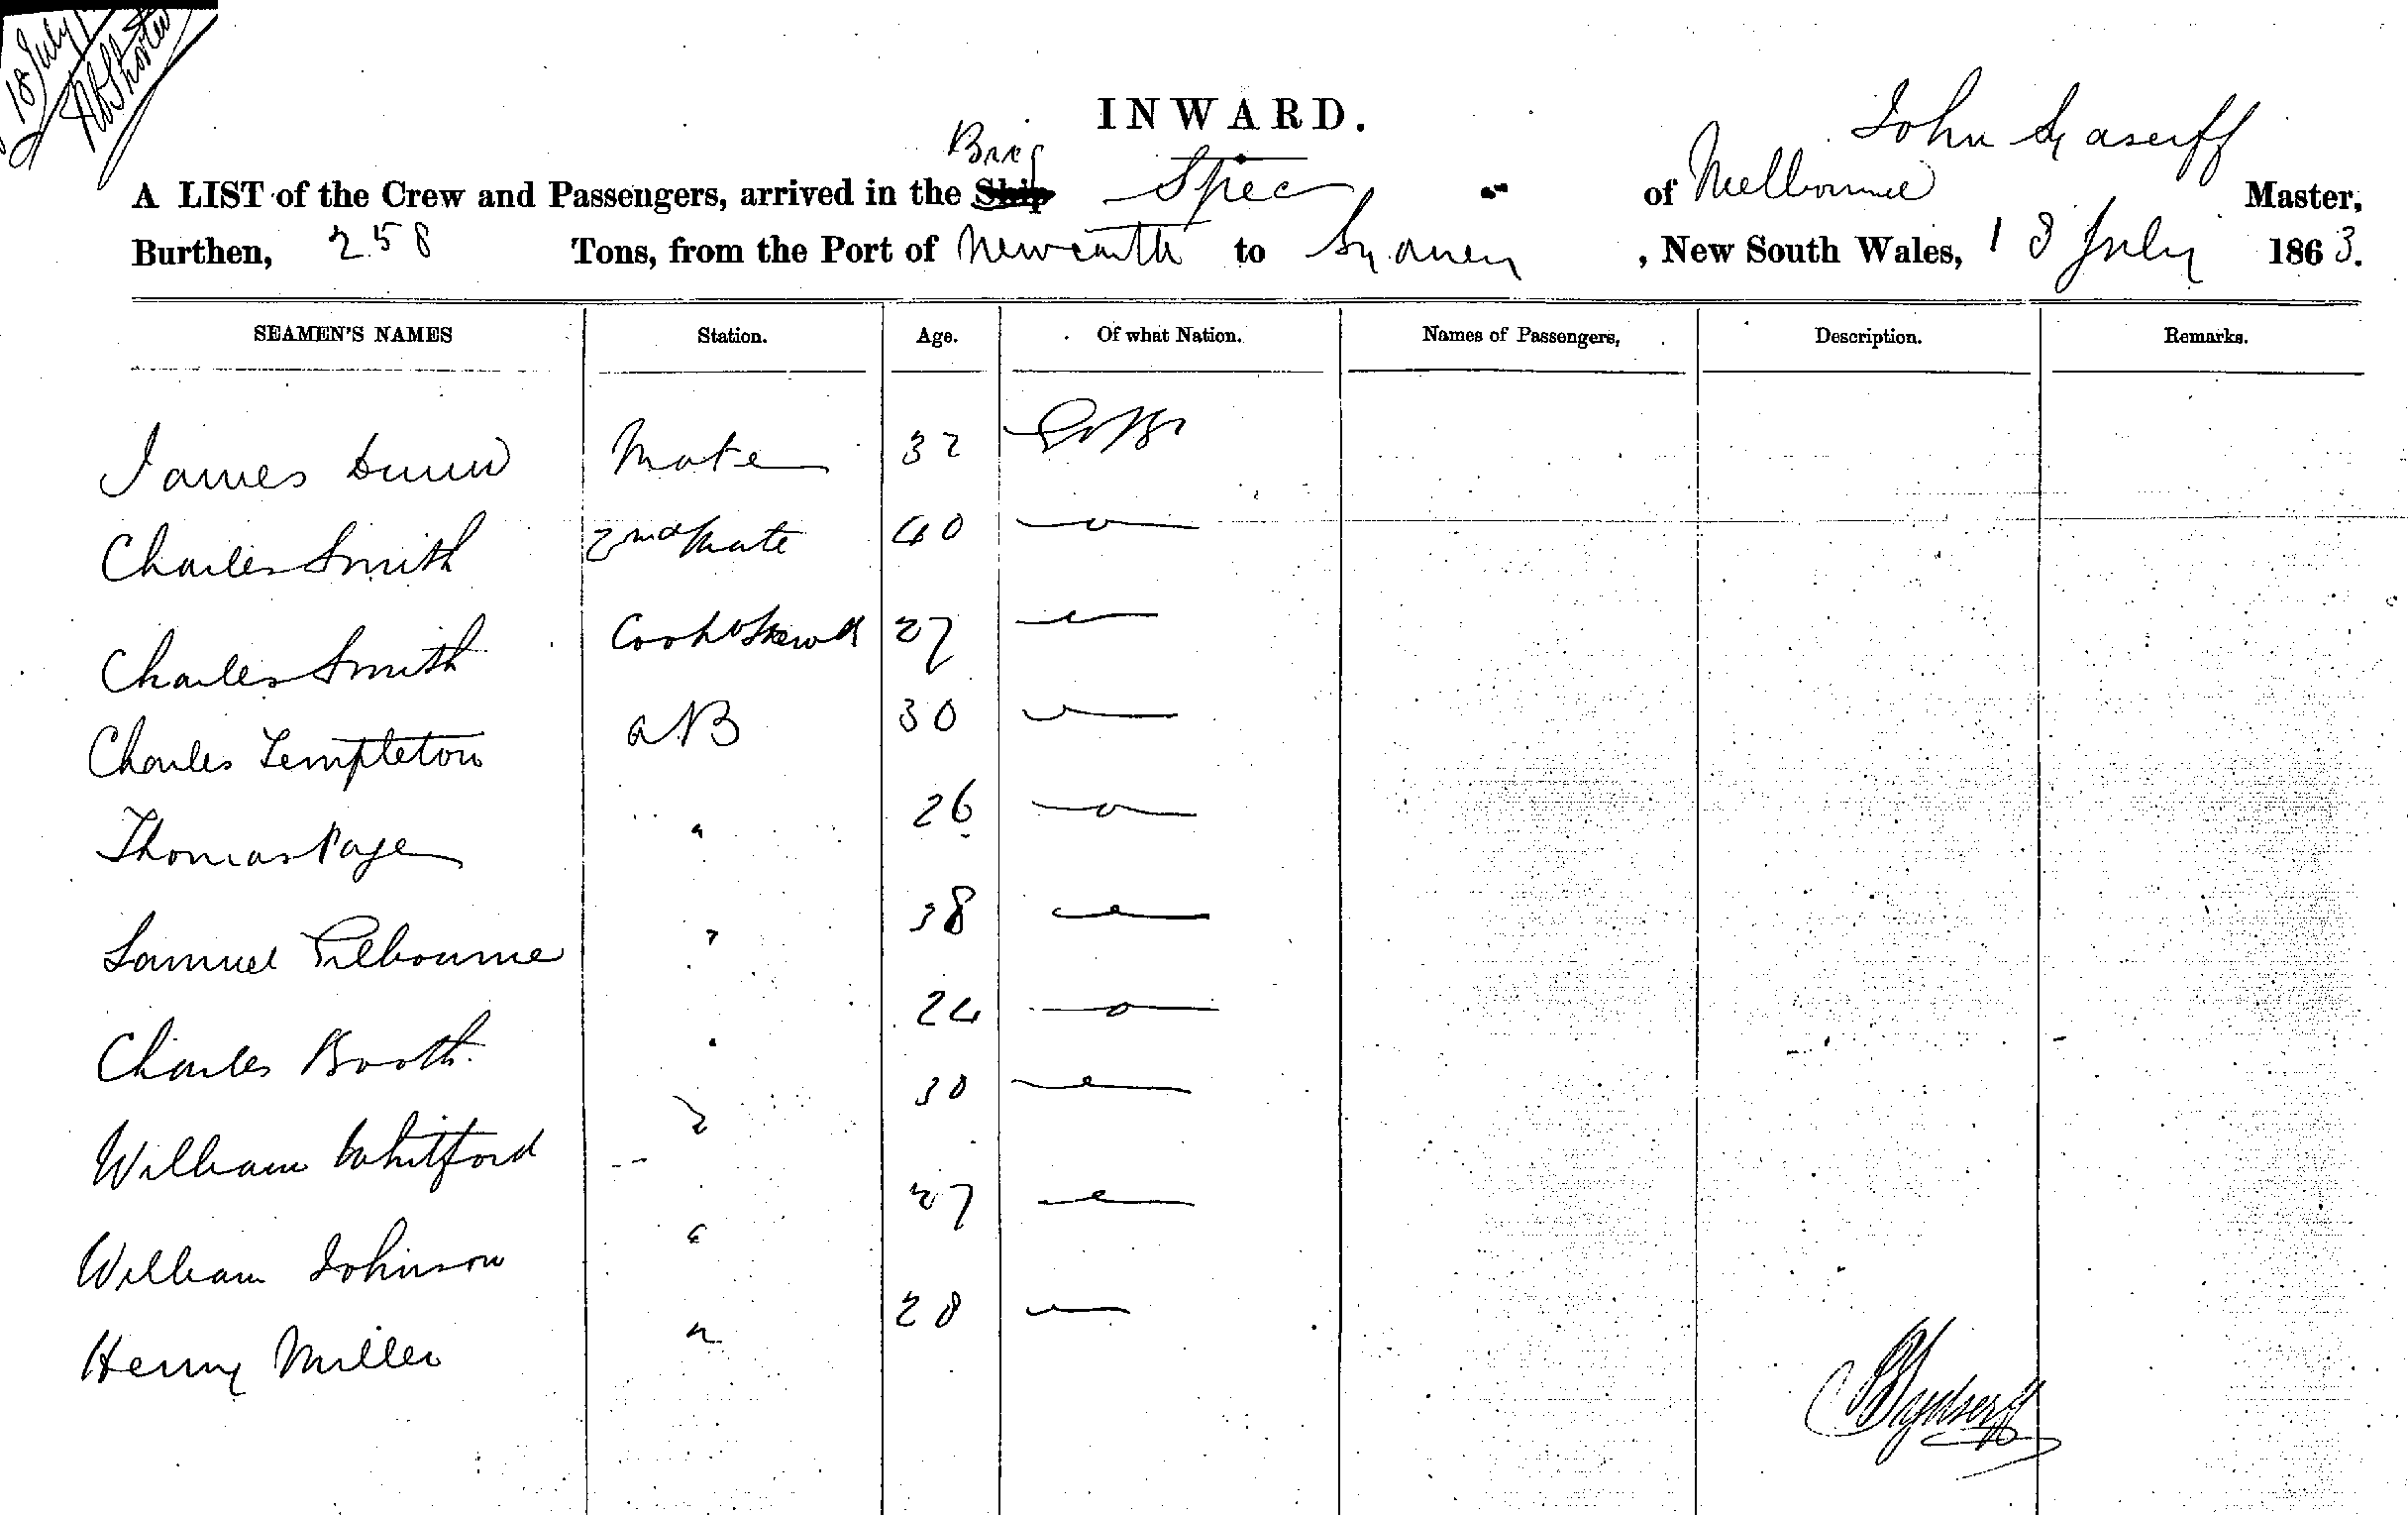 18 July
INWARD.
John
Brig
A LIST of the Crew and Passengers, arrived in the Ship Spec of Melbourne Master,
Burthen, 258 Tons, from the Port of Newcastle to Sydney , New South Wales, 18 July 1863.
SEAMEN'S NAMES Station. Age. Of what Nation. Names of Passengers, Description. Remarks.
James Dunn Mate 32
Charles Smith 2nd Mate 40
Charles Smith Cook & Stewd 27
Charles Templeton AB 30
Thomas Page " 26
Samuel Pilbourne " 38
Charles Booth " 24
William Whitford " 30
William Johnson " 27
Henry Miller " 28